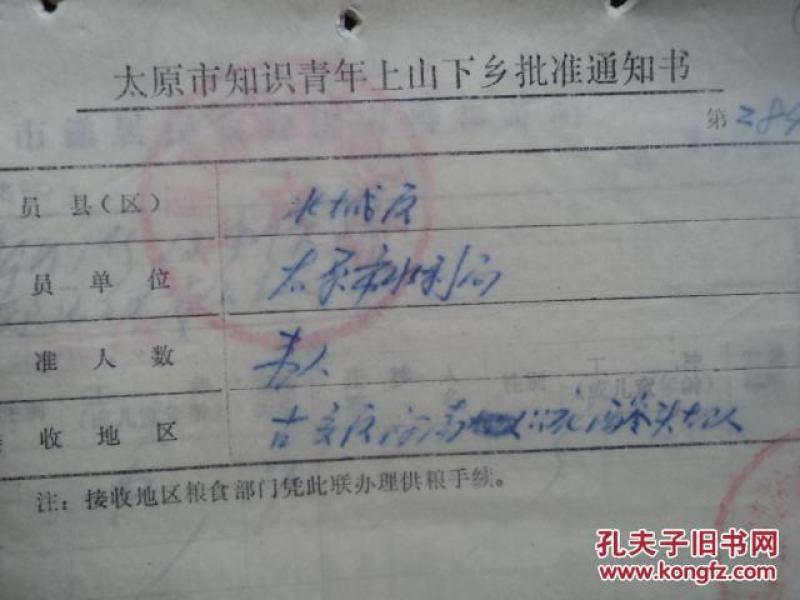 太原市知识青年上山下乡批准通知书
第284
员县(区) 北城区
员单位 太原市水利局
准人数 壹人
收地区 古交区河南 头大队
注：接收地区粮食部门凭此联办理供粮手续。
孔夫子旧书网
www.kongfz.com